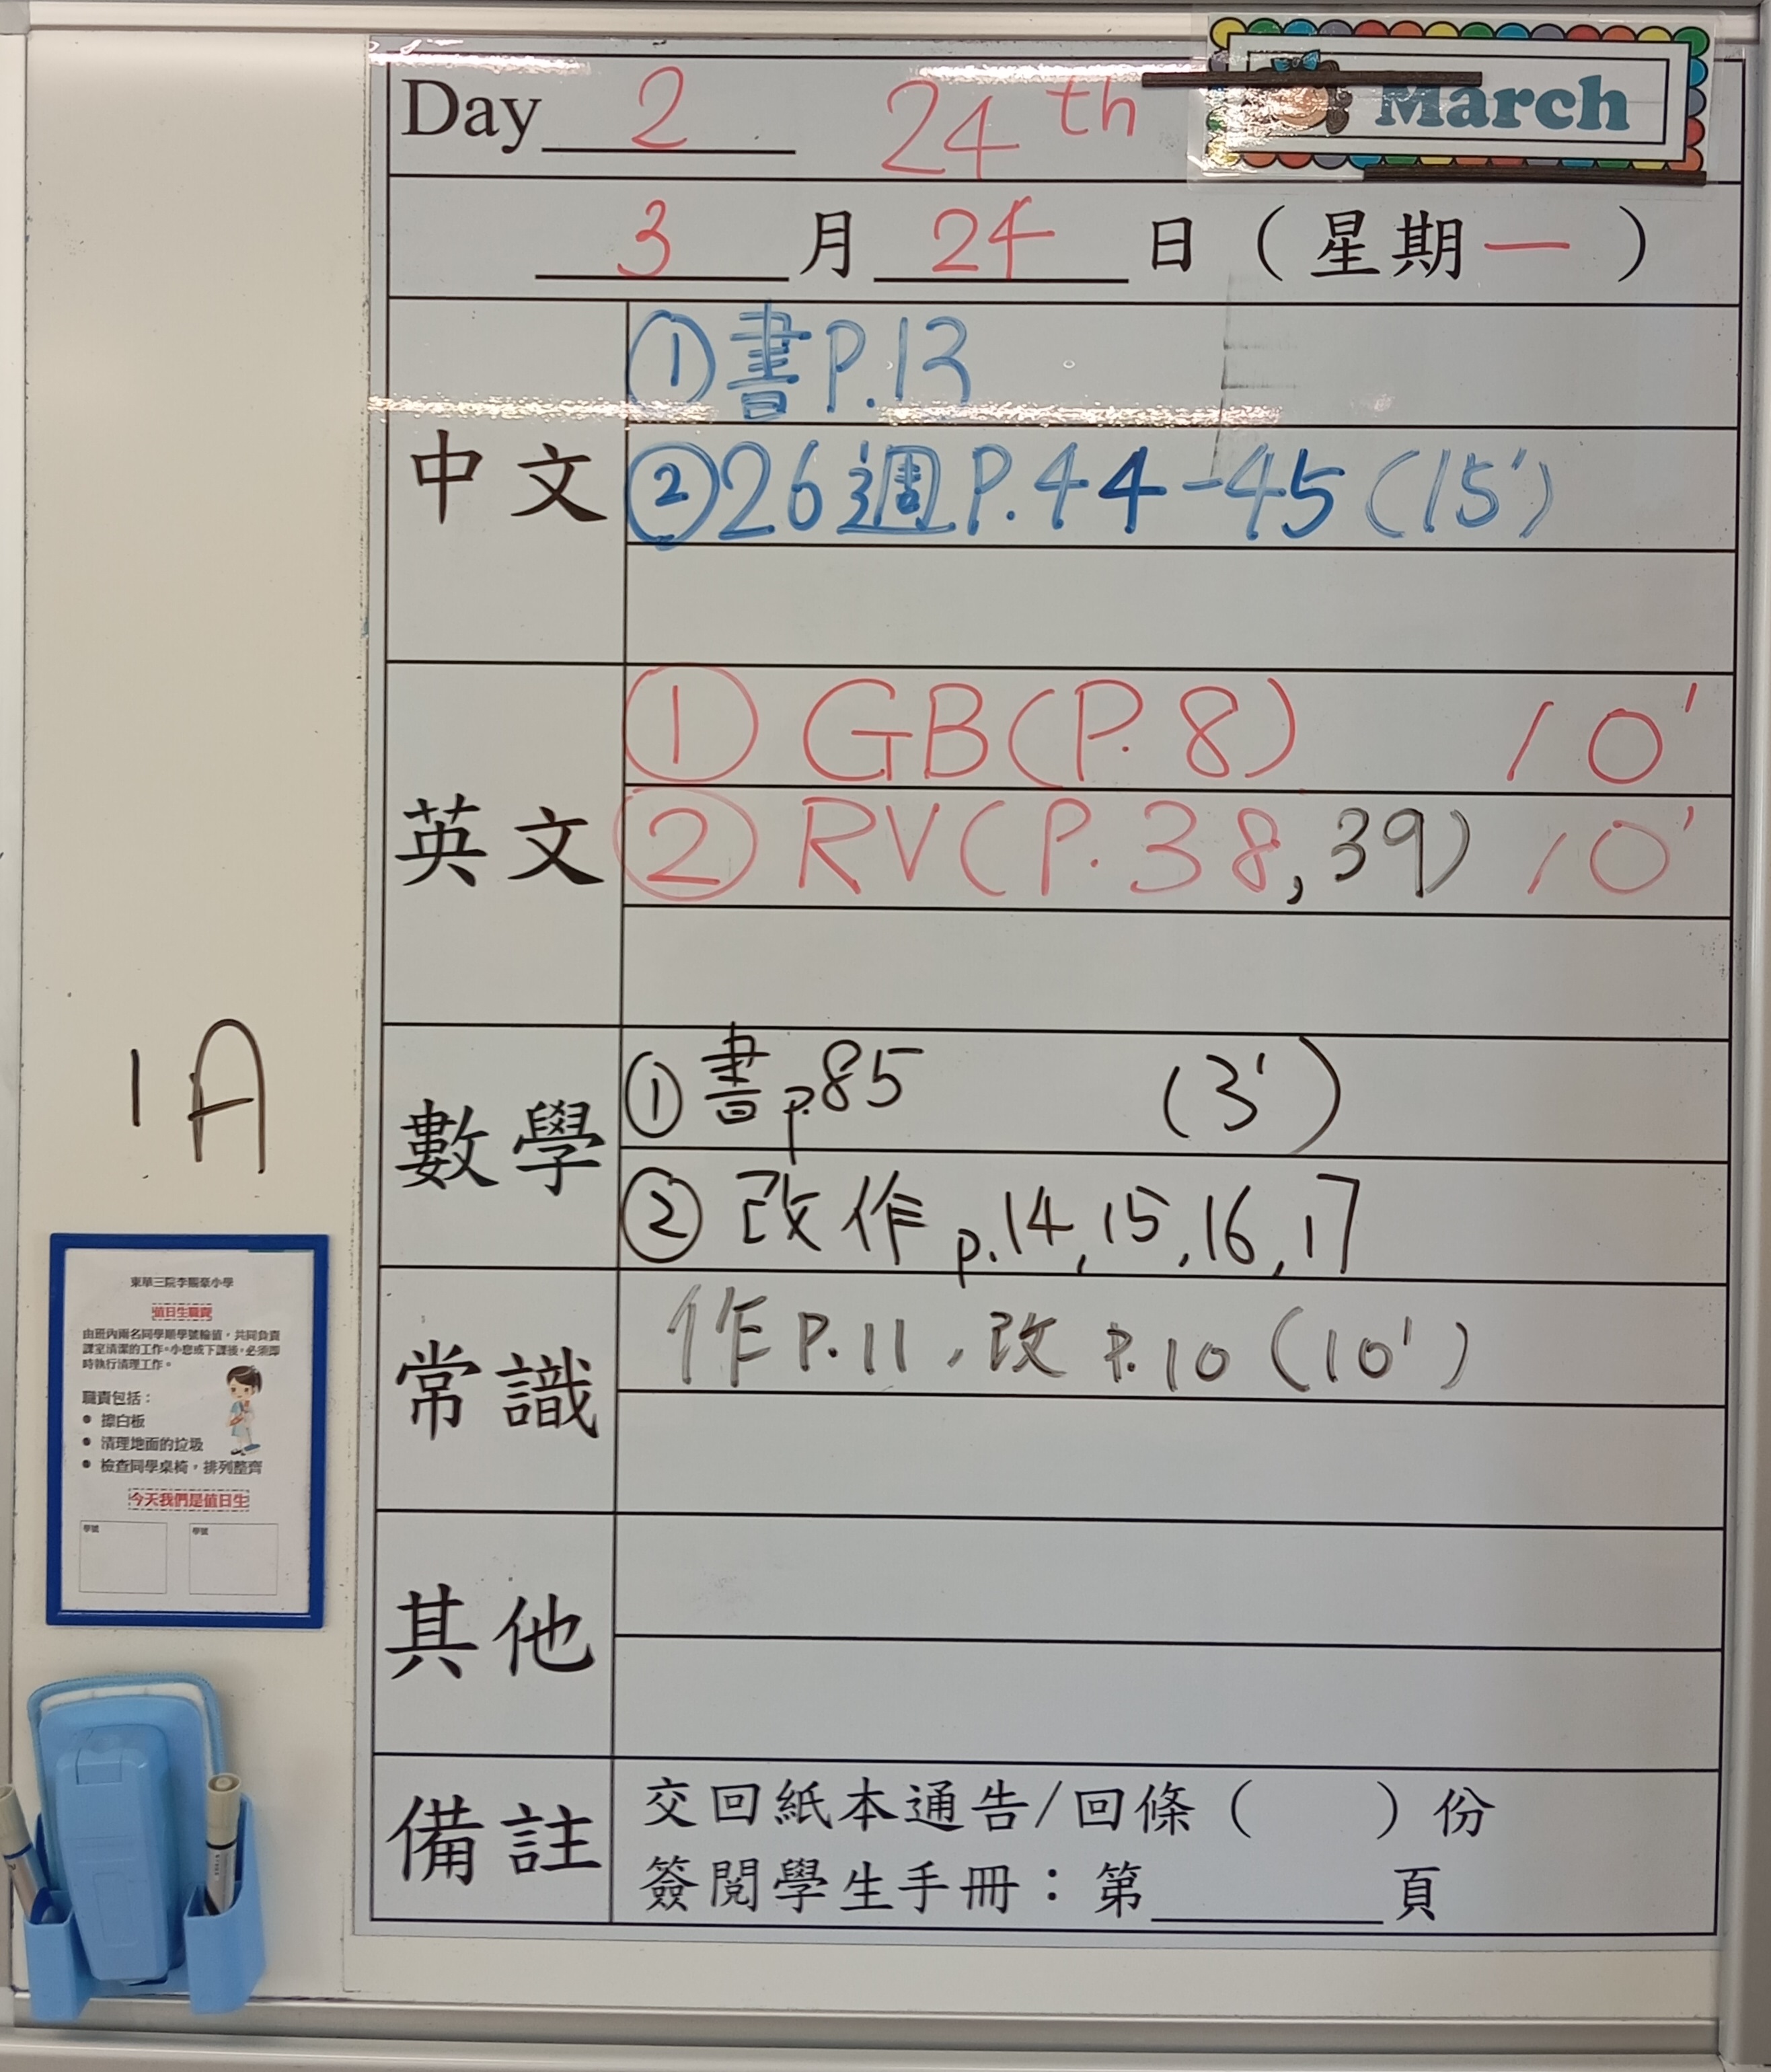 Day 2 24th March
3 月 24 日 ( 星期一 )
中文
①書P.13
②26週P.44-45(15')
英文
① GB(P.8) 10'
② RV(P.38,39) 10'
數學
①書p.85 (3')
②改作p.14,15,16,17
常識
作P.11,改P.10(10')
其他
備註
交回紙本通告/回條( )份
簽閱學生手冊：第 頁
1A
值日生職責
由班內兩名同學順學號輪值，共同負責
課室清潔的工作。小息或下課後，必須即
時執行清理工作。
職責包括：
● 擦白板
● 清理地面的垃圾
● 檢查同學桌椅，排列整齊
今天我們是值日生
學號 學號